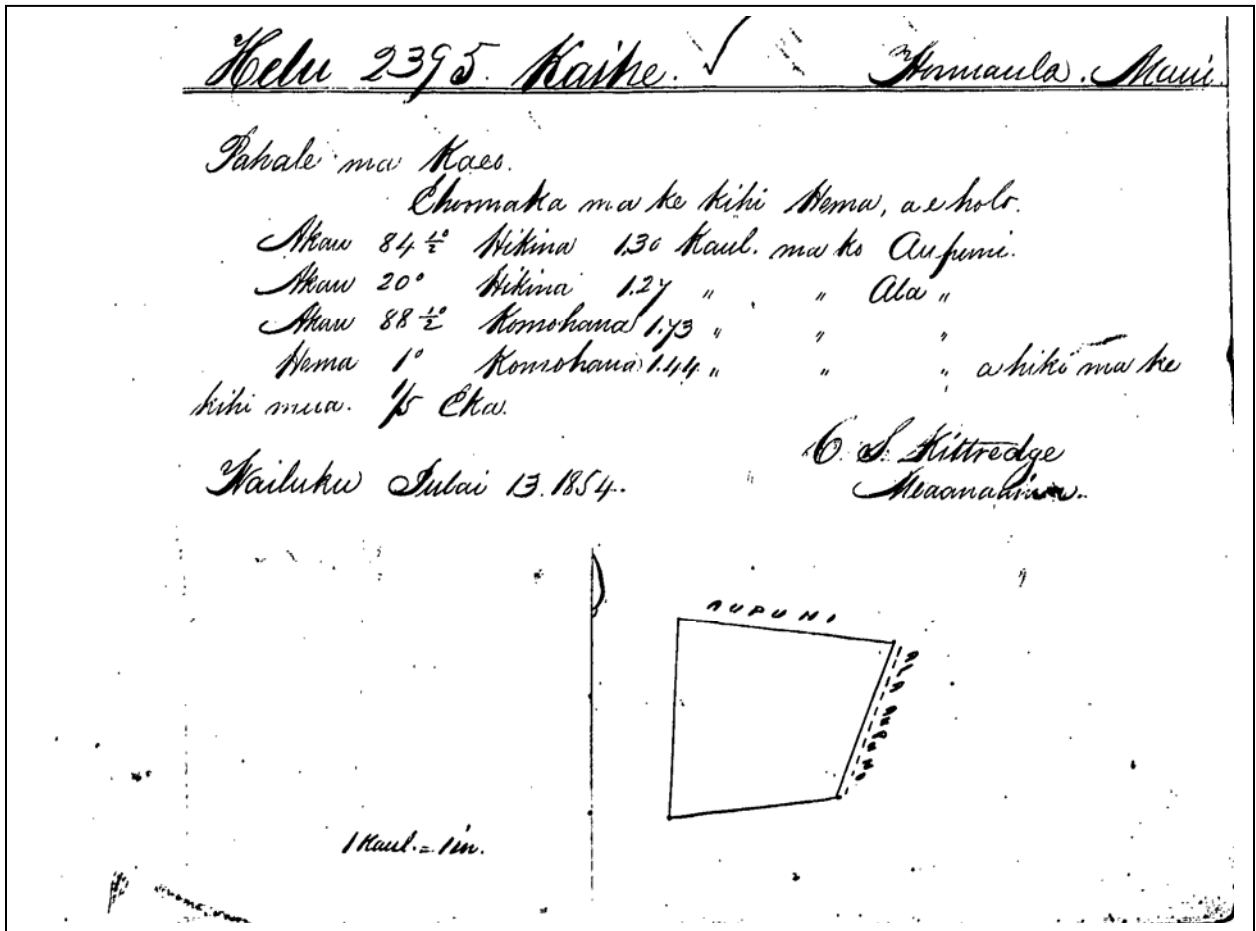 Helu 2395. Kaihe. Honuaula. Maui.
Pahale ma Kaeo.
E hoomaka ma ke kihi Hema, a e holo.
Akau 84 ½° Hikina 1.30 Kaul. ma ko Aupuni.
Akau 20° Hikina 1.27 " " Ala "
Akau 88 ½° Komohana 1.73 " " "
Hema 1° Komohana 1.44 " " " a hiki ma ke
kihi mua. 1/5 Eka.
C. S. Kittredge
Wailuku Iulai 13. 1854. Meaanaaina.
AUPUNI
ALA AUPUNI
1 Kaul. = 1 in.